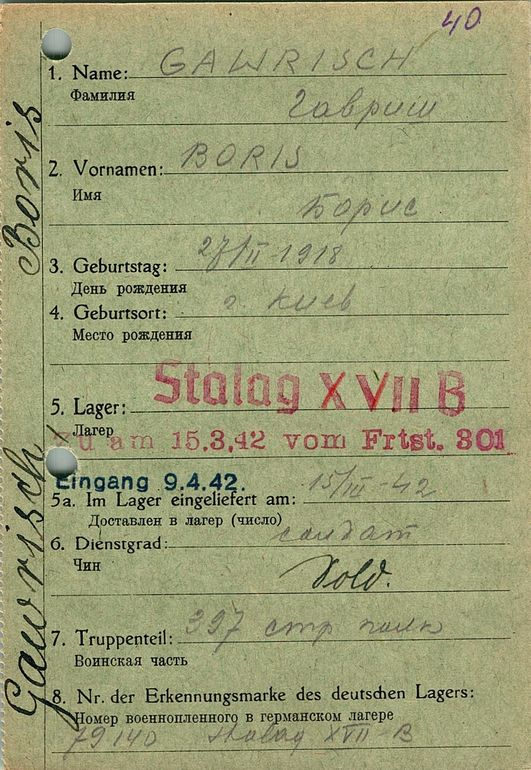 40
1. Name: GAWRISCH
Фамилия
Гавриш
2. Vornamen: BORIS
Имя
Борис
3. Geburtstag: 27/II-1918
День рождения
4. Geburtsort: г. Киев
Место рождения
Stalag XVII B
5. Lager:
Лагерь
Zu am 15.3.42 vom Frtst. 301
Eingang 9.4.42.
5a. Im Lager eingeliefert am: 15/III-42
Доставлен в лагер (число)
6. Dienstgrad: солдат
Чин
Sold.
7. Truppenteil: 397 стр полк
Воинская часть
8. Nr. der Erkennungsmarke des deutschen Lagers:
Номер военнопленного в германском лагере
79140 Stalag XVII-B
Gawrisch Boris